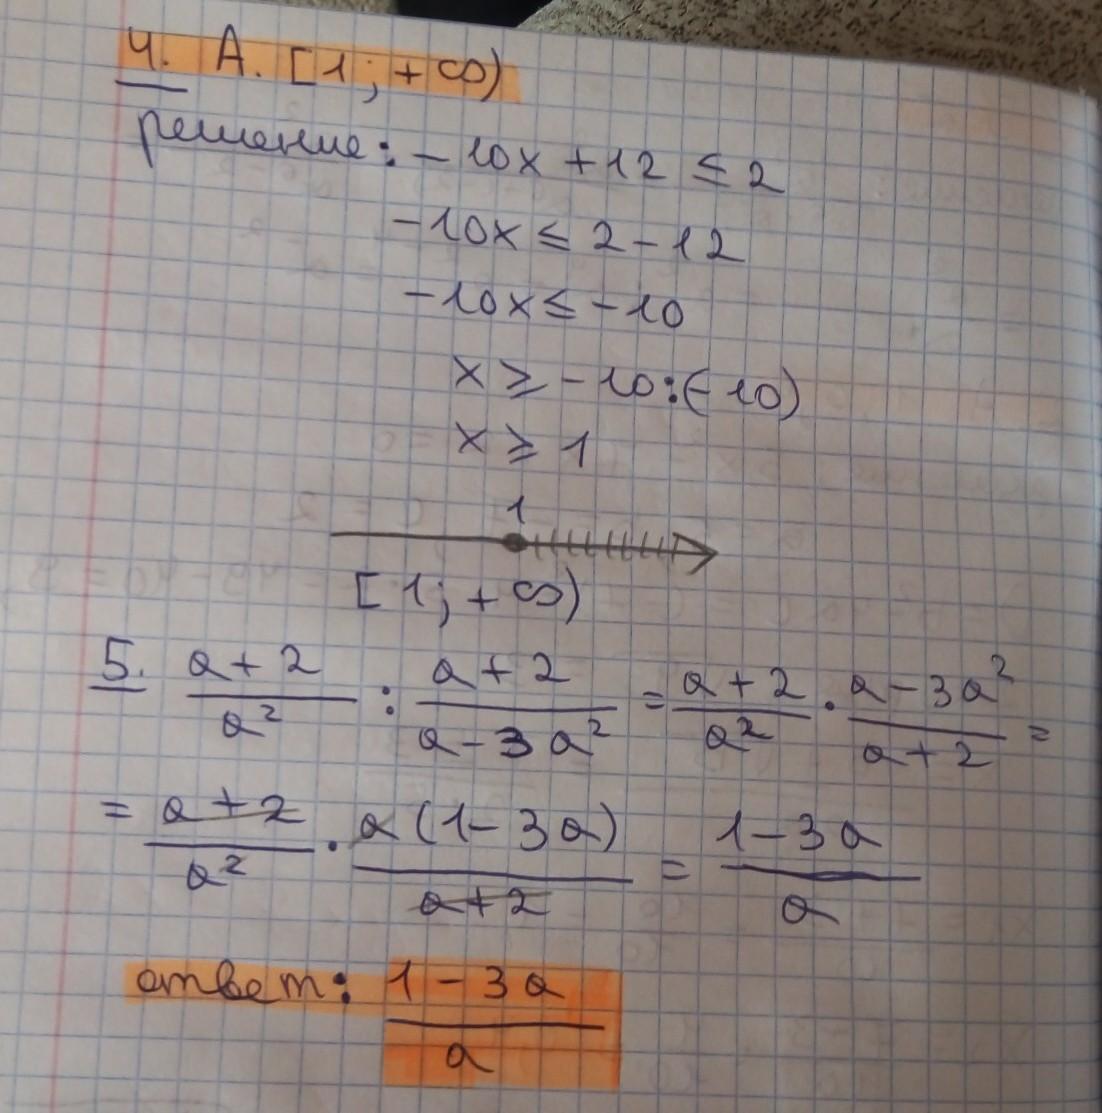 4. А. [1; +∞)
решение: -10x + 12 ≤ 2
-10x ≤ 2 - 12
-10x ≤ -10
x ≥ -10:(-10)
x ≥ 1
1
[1; +∞)
5. (a + 2)/a² : (a + 2)/(a - 3a²) = (a + 2)/a² · (a - 3a²)/(a + 2) =
= (a + 2)/a² · a(1 - 3a)/(a + 2) = (1 - 3a)/a
ответ: (1 - 3a)/a